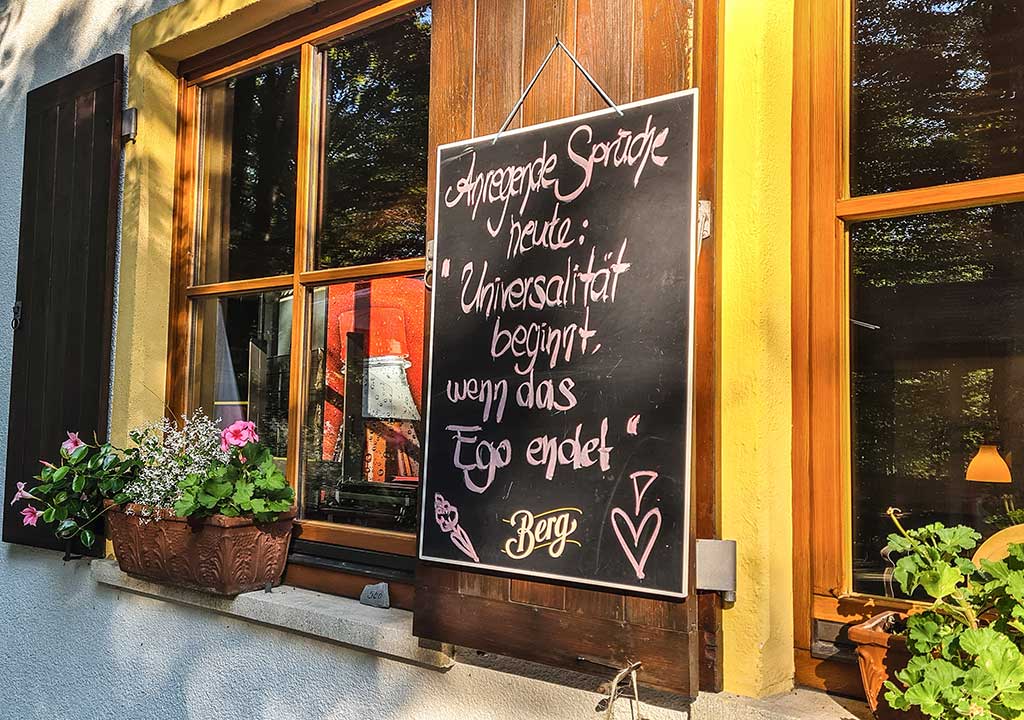 Anregende Sprüche
heute:
"Universalität
beginnt,
wenn das
Ego endet"
Berg